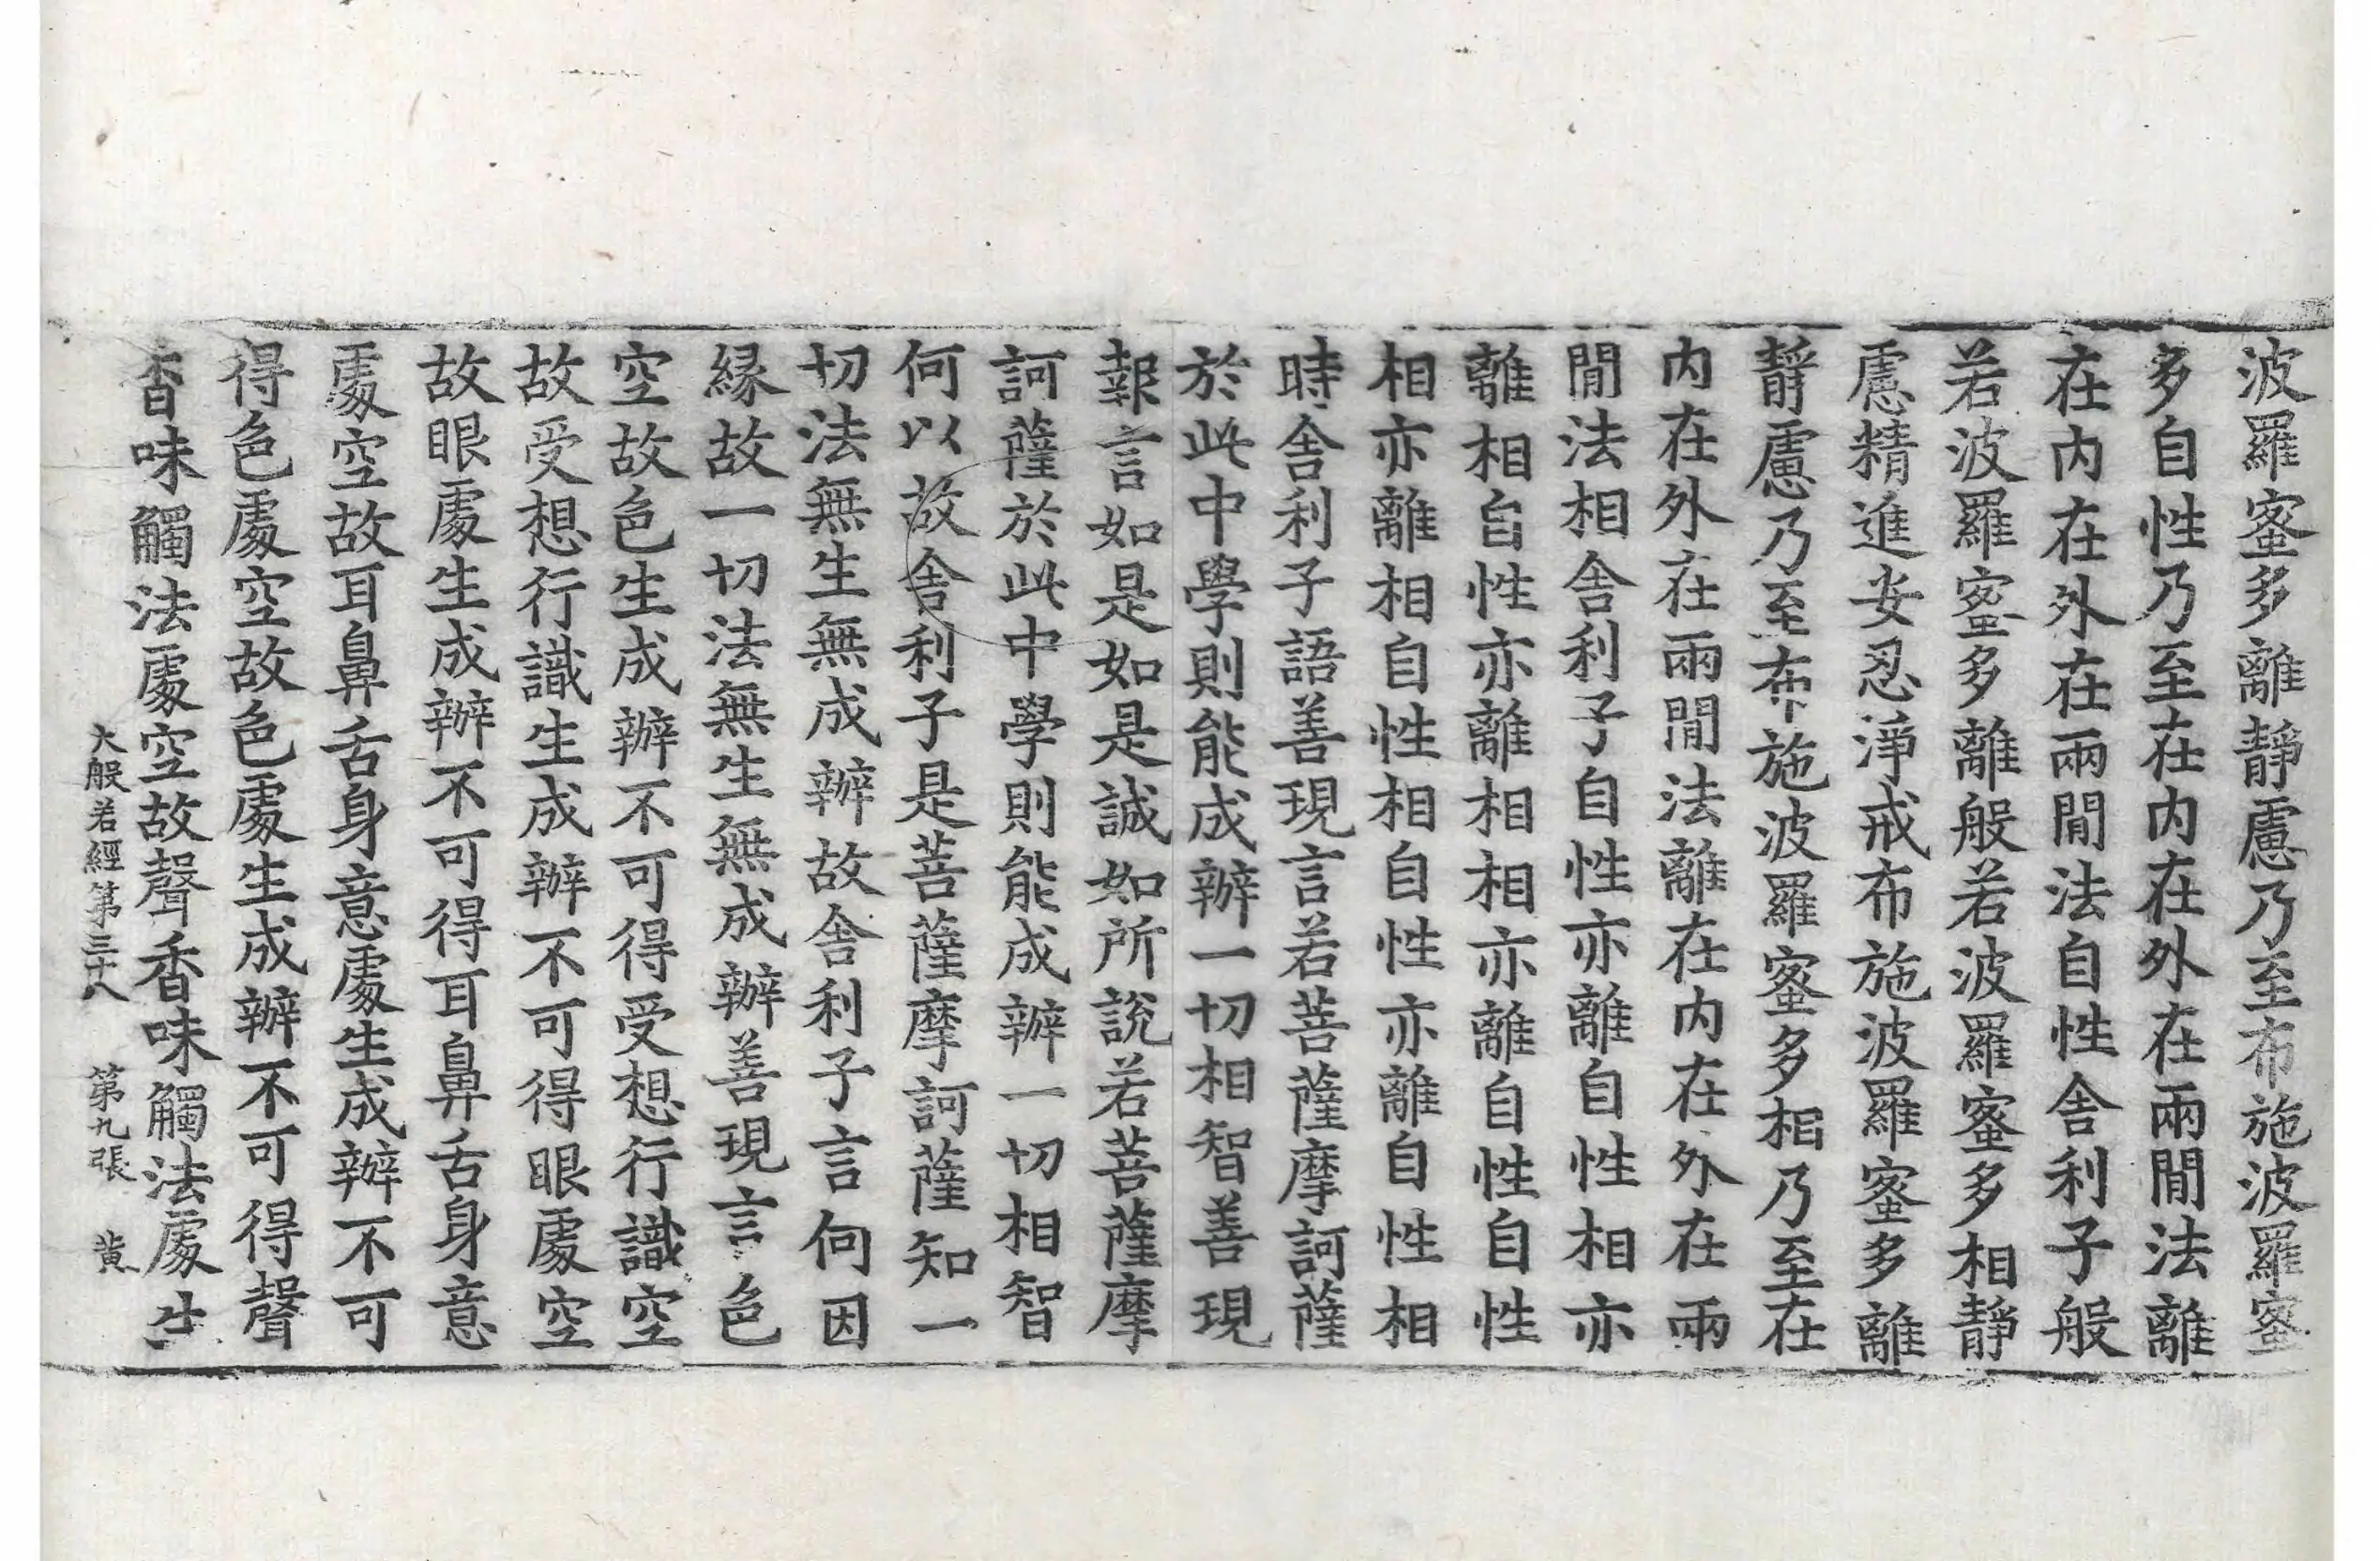 波羅蜜多離靜慮乃至布施波羅蜜
多自性乃至在内在外在兩閒法離
在内在外在兩閒法自性舍利子般
若波羅蜜多離般若波羅蜜多相靜
慮精進安忍淨戒布施波羅蜜多離
靜慮乃至布施波羅蜜多相乃至在
内在外在兩閒法離在内在外在兩
閒法相舍利子自性亦離自性相亦
離相自性亦離相相亦離自性自性
相亦離相自性相自性亦離自性相
時舍利子語善現言若菩薩摩訶薩
於此中學則能成辦一切相智善現
報言如是如是誠如所說若菩薩摩
訶薩於此中學則能成辦一切相智
何以故舍利子是菩薩摩訶薩知一
切法無生無成辦故舍利子言何因
縁故一切法無生無成辦善現言色
空故色生成辦不可得受想行識空
故受想行識生成辦不可得眼處空
故眼處生成辦不可得耳鼻舌身意
處空故耳鼻舌身意處生成辦不可
得色處空故色處生成辦不可得聲
香味觸法處空故聲香味觸法處生
大般若經第三十八 第九張 黄